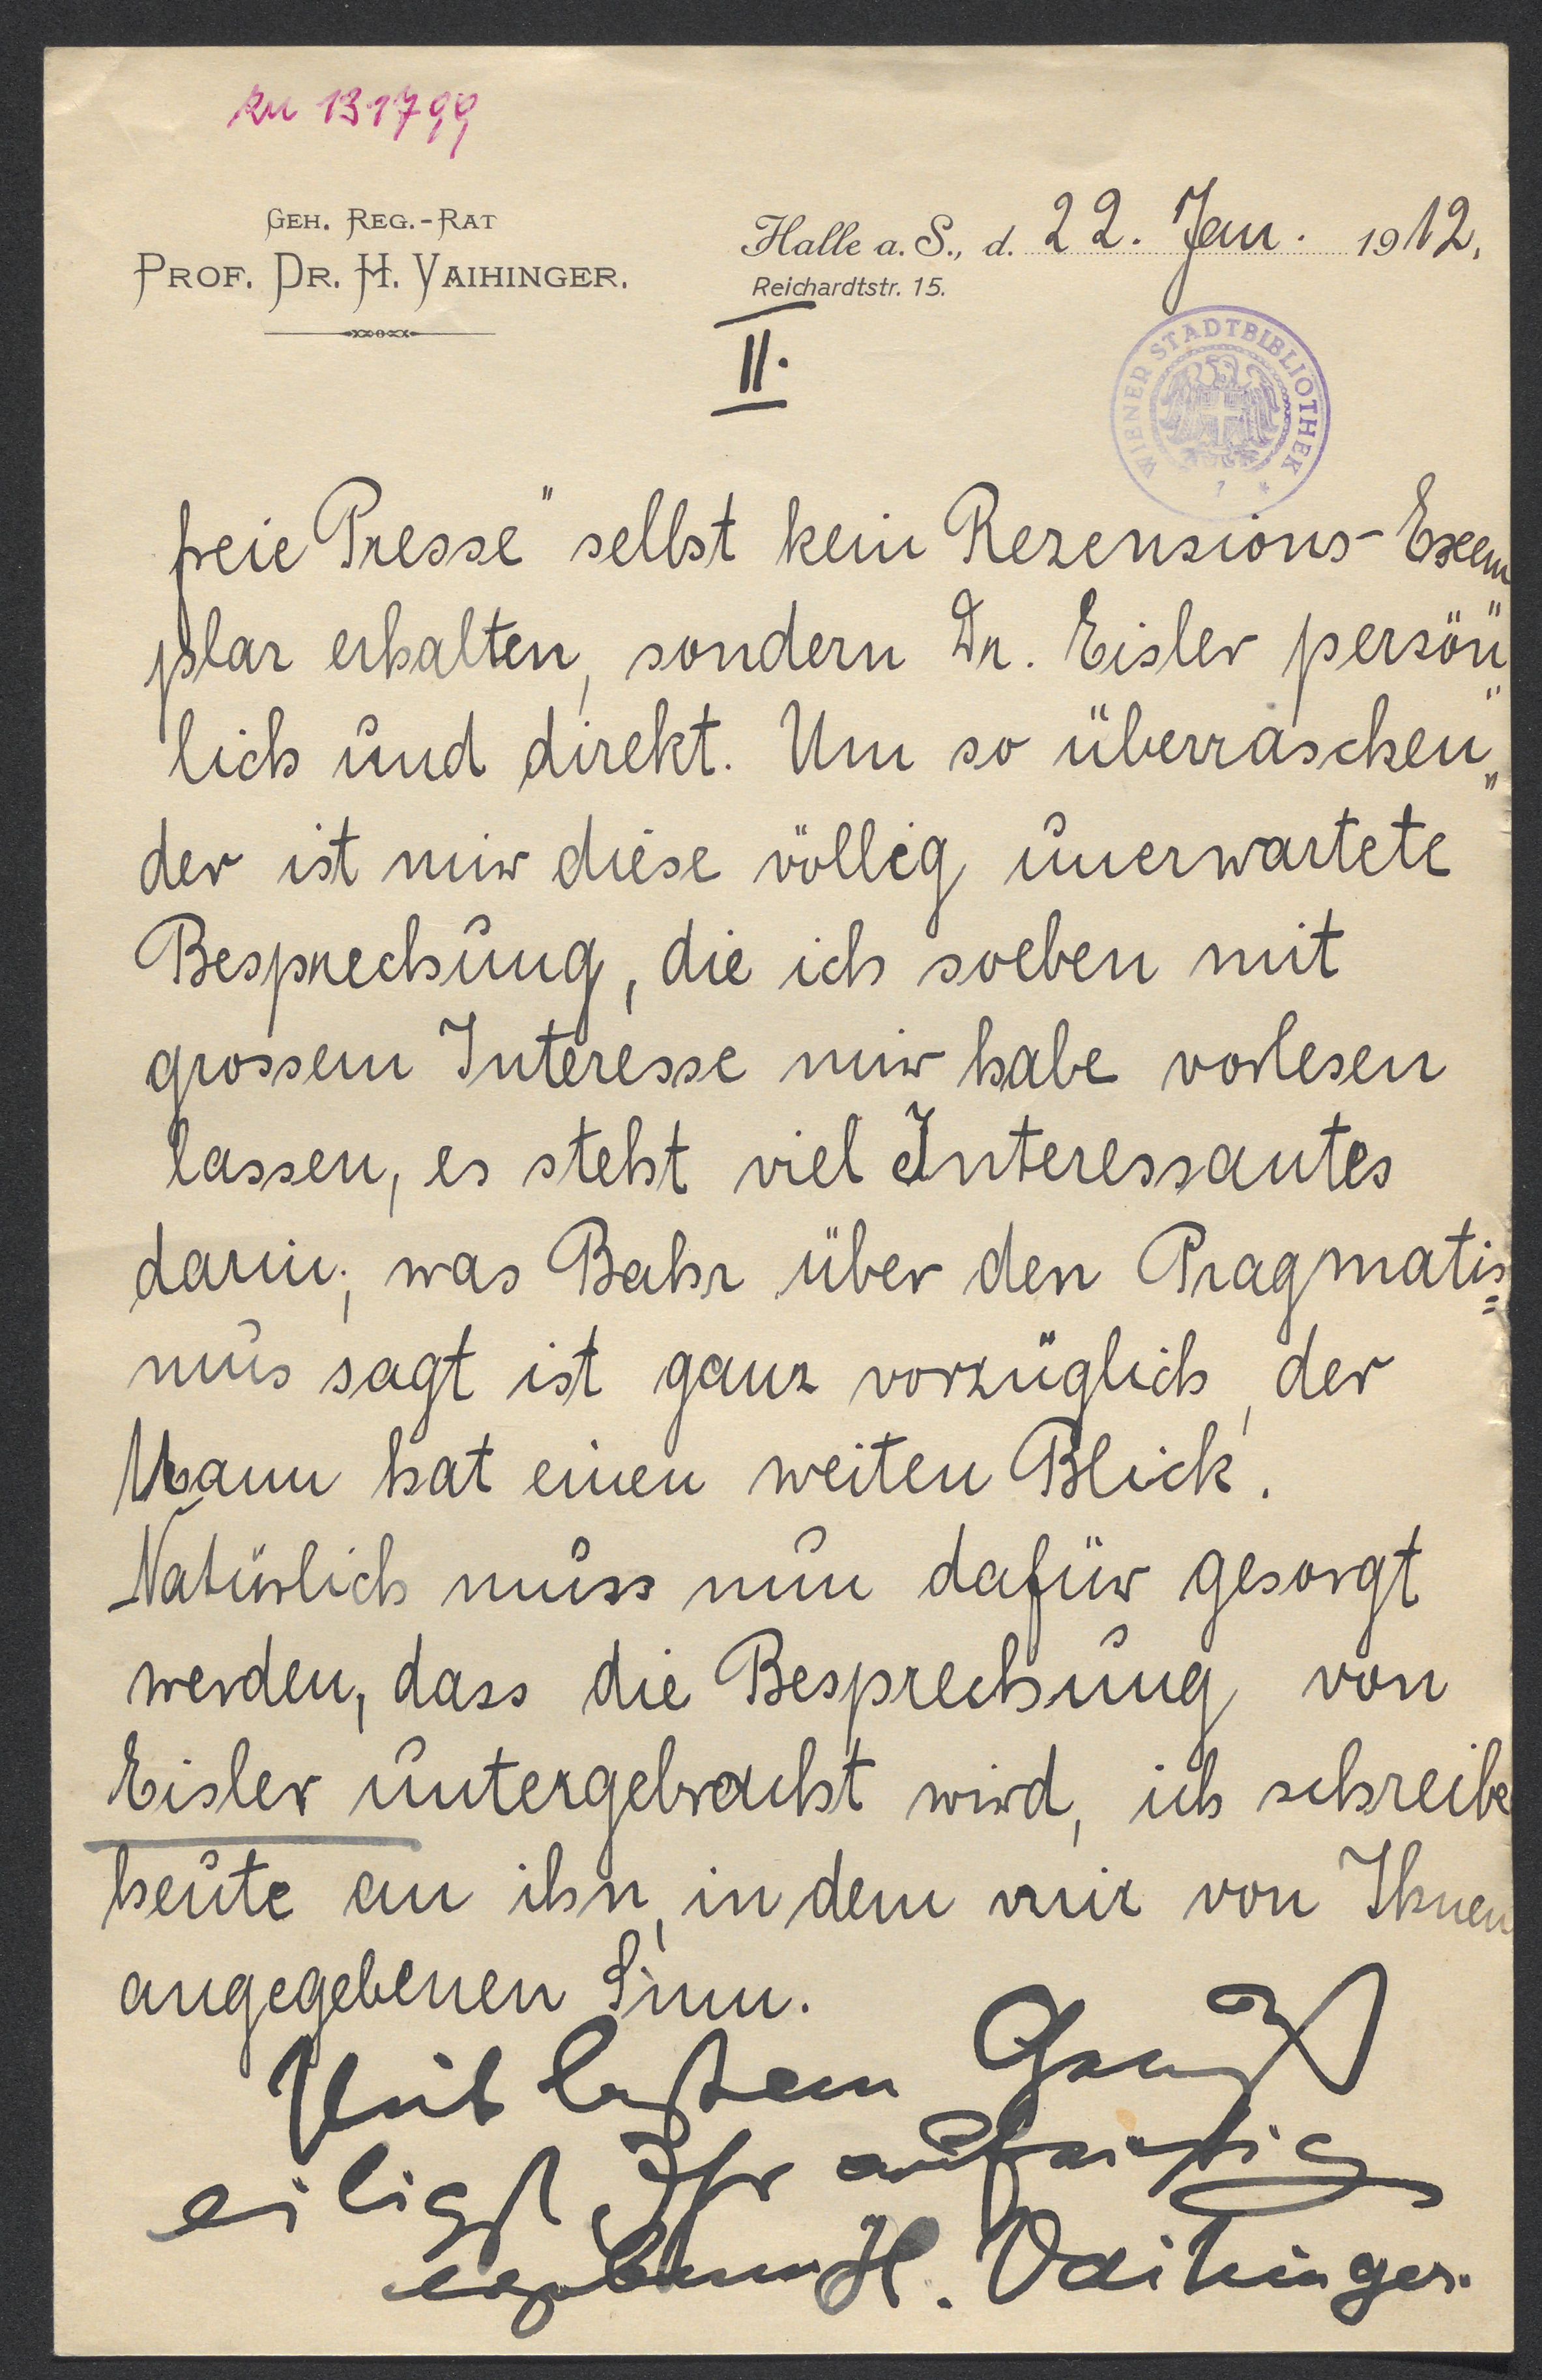 zu 131799
GEH. REG.-RAT
PROF. DR. H. VAIHINGER.
Halle a. S., d. 22. Jan. 1912.
Reichardtstr. 15.
II.
WIENER STADTBIBLIOTHEK
freie Presse" selbst kein Rezensions-Exem
plar erhalten, sondern Dr. Eisler persön"
lich und direkt. Um so überraschen"
der ist mir diese völlig unerwartete
Besprechung, die ich soeben mit
grossem Interesse mir habe vorlesen
lassen, es steht viel Interessantes
darin; was Bahr über den Pragmatis=
mus sagt ist ganz vorzüglich, der
Mann hat einen weiten Blick.
Natürlich muss nun dafür gesorgt
werden, dass die Besprechung von
Eisler untergebracht wird, ich schreibe
heute an ihn, in dem mir von Ihnen
angegebenen Sinn.
Mit bestem Gruß
eiligst Ihr aufrichtig
ergebener H. Vaihinger.